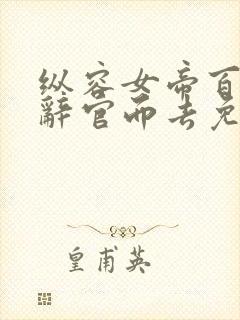 纵容女帝百
辞官而去免
皇甫英